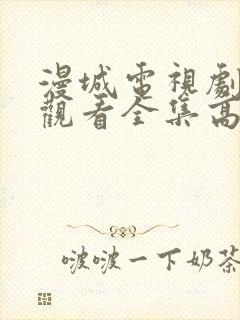 漫城電視劇
觀看全集高
啵啵一下奶茶